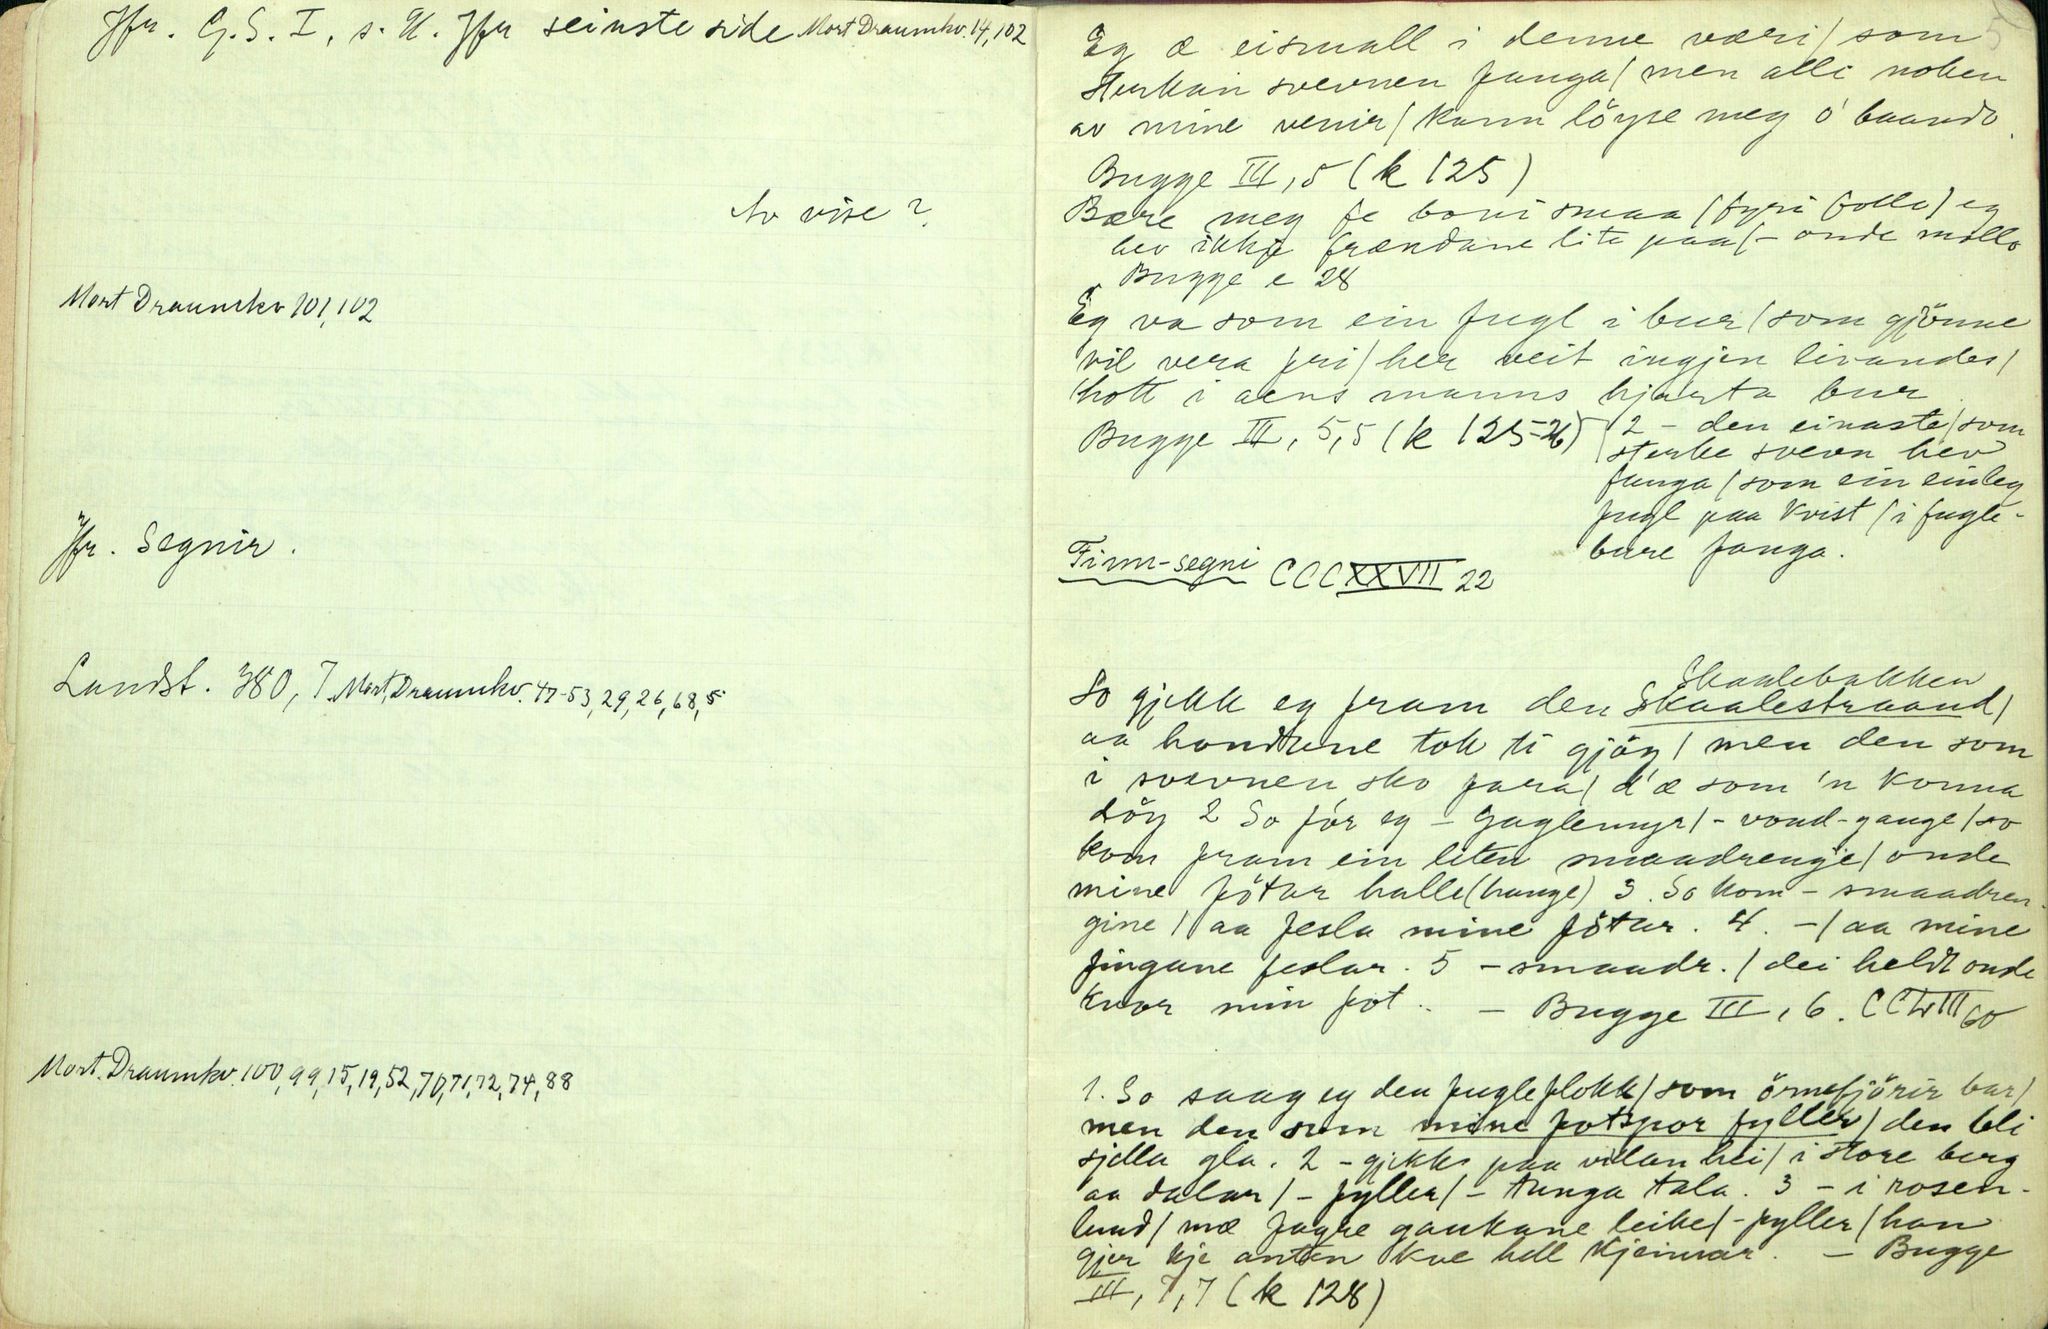 Jfr. G.S. I, s. U. Jfr seinste side Mort Draumkv. 14, 102
Av vise?
Mort Draumkv 101, 102
Jfr. Segnir.
Landst. 380, 7. Mort, Draumkv. 47-53, 29, 26, 68, 5
Mort. Draumkv. 100, 99, 15, 19, 52, 70, 71, 72, 74, 88
5
Eg æ eismall i denne væri / som
sturkan svevnen fanga / men alli noken
av mine venir / kann löyse meg ó baando.
Bugge III, 5 (k 125)
Bære meg fe boni smaa / fyri folle / eg
hev ikkje frændane lite paa / - onde mollo
Bugge e 28
Eg va som ein fugl i bur / som gjönne
vil vera fri / her veit ingjen livandes /
hott i aens manns hjarta bur.
Bugge III, 5,5 (k 125-26)
2 - den einaste / som
sterke svevn hev
fanga / som ein einleg
fugl paa kvist / i fugle-
bure fanga.
Finn-segni CCCXXVII 22
Skaalebakken
So gjekk eg fram den Skaalestraand /
aa hondune tok ti gjög / men den som
i svevnen sko fara / d'æ som 'n konna
dög 2 So fór eg - Gaglemyr / - vond-gange / so
kom fram ein liten smaadrengje / onde
mine fötar halle (hange) 3. So kom - smaadren-
gine / aa fesla mine fötar. 4. - / aa mine
fingane feslar. 5 - smaadr. / dei heldt onde
kvor min fot. - Bugge III, 6. 60
1. So saag eg den fugleflokk / som örnefjörir bar /
men den som mine fotspor fyller / den bli
sjella gla. 2 - gjekk paa villan hei / i store berg
aa dalar / - fyller / - tunga tala. 3 - i rosen-
lund / mæ fagre gaukane leike / - fyller / han
gjer kje anten kve hell kjeinvar. - Bugge
III, 7,7 (k 128)